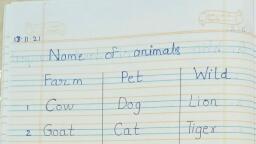 18.11.21
Name of animals
Farm Pet Wild
1 Cow Dog Lion
2 Goat Cat Tiger